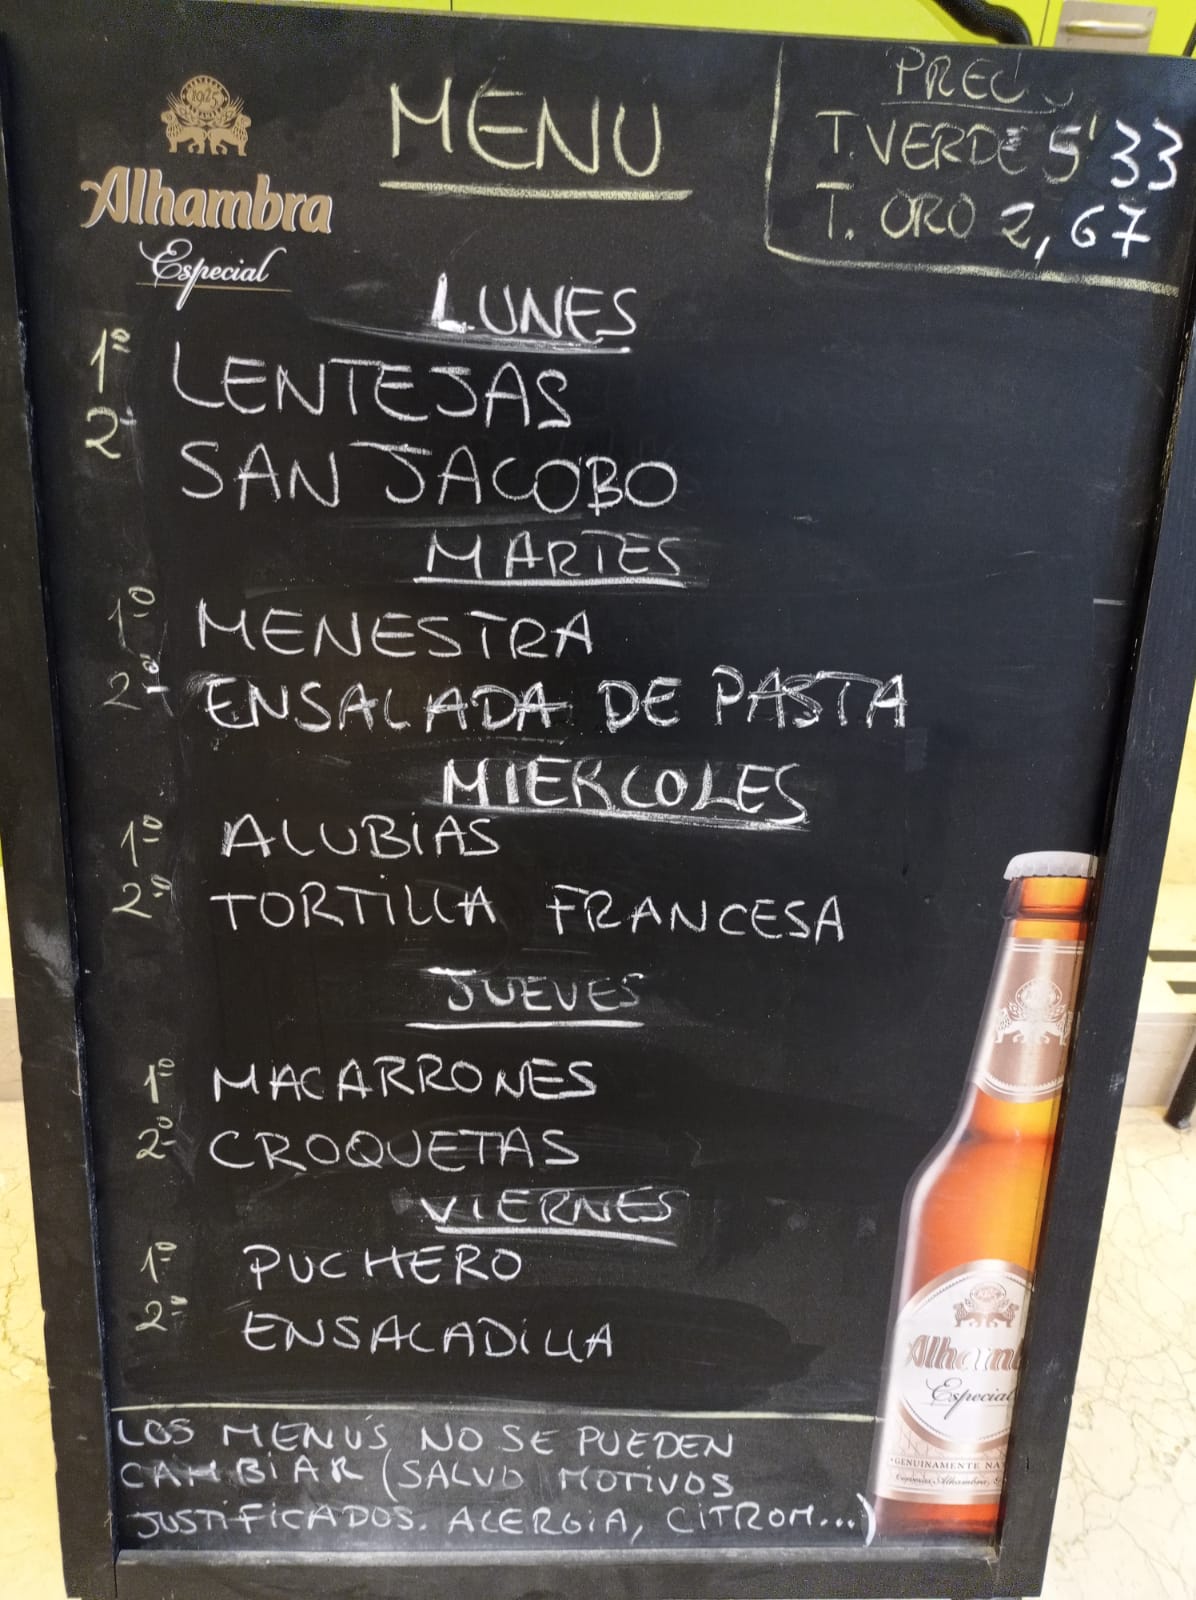 1925
Alhambra
Especial
MENU
PRECIO
T. VERDE 5'33
T. ORO 2,67
LUNES
1º LENTEJAS
2º SAN JACOBO
MARTES
1º MENESTRA
2º ENSALADA DE PASTA
MIERCOLES
1º ALUBIAS
2º TORTILLA FRANCESA
JUEVES
1º MACARRONES
2º CROQUETAS
VIERNES
1º PUCHERO
2º ENSALADILLA
LOS MENÚS NO SE PUEDEN
CAMBIAR (SALVO MOTIVOS
JUSTIFICADOS. ALERGIA, CITROM...)
Alhamb
Especial
GENUINAMENTE NA
Cervezas Alhambra, S